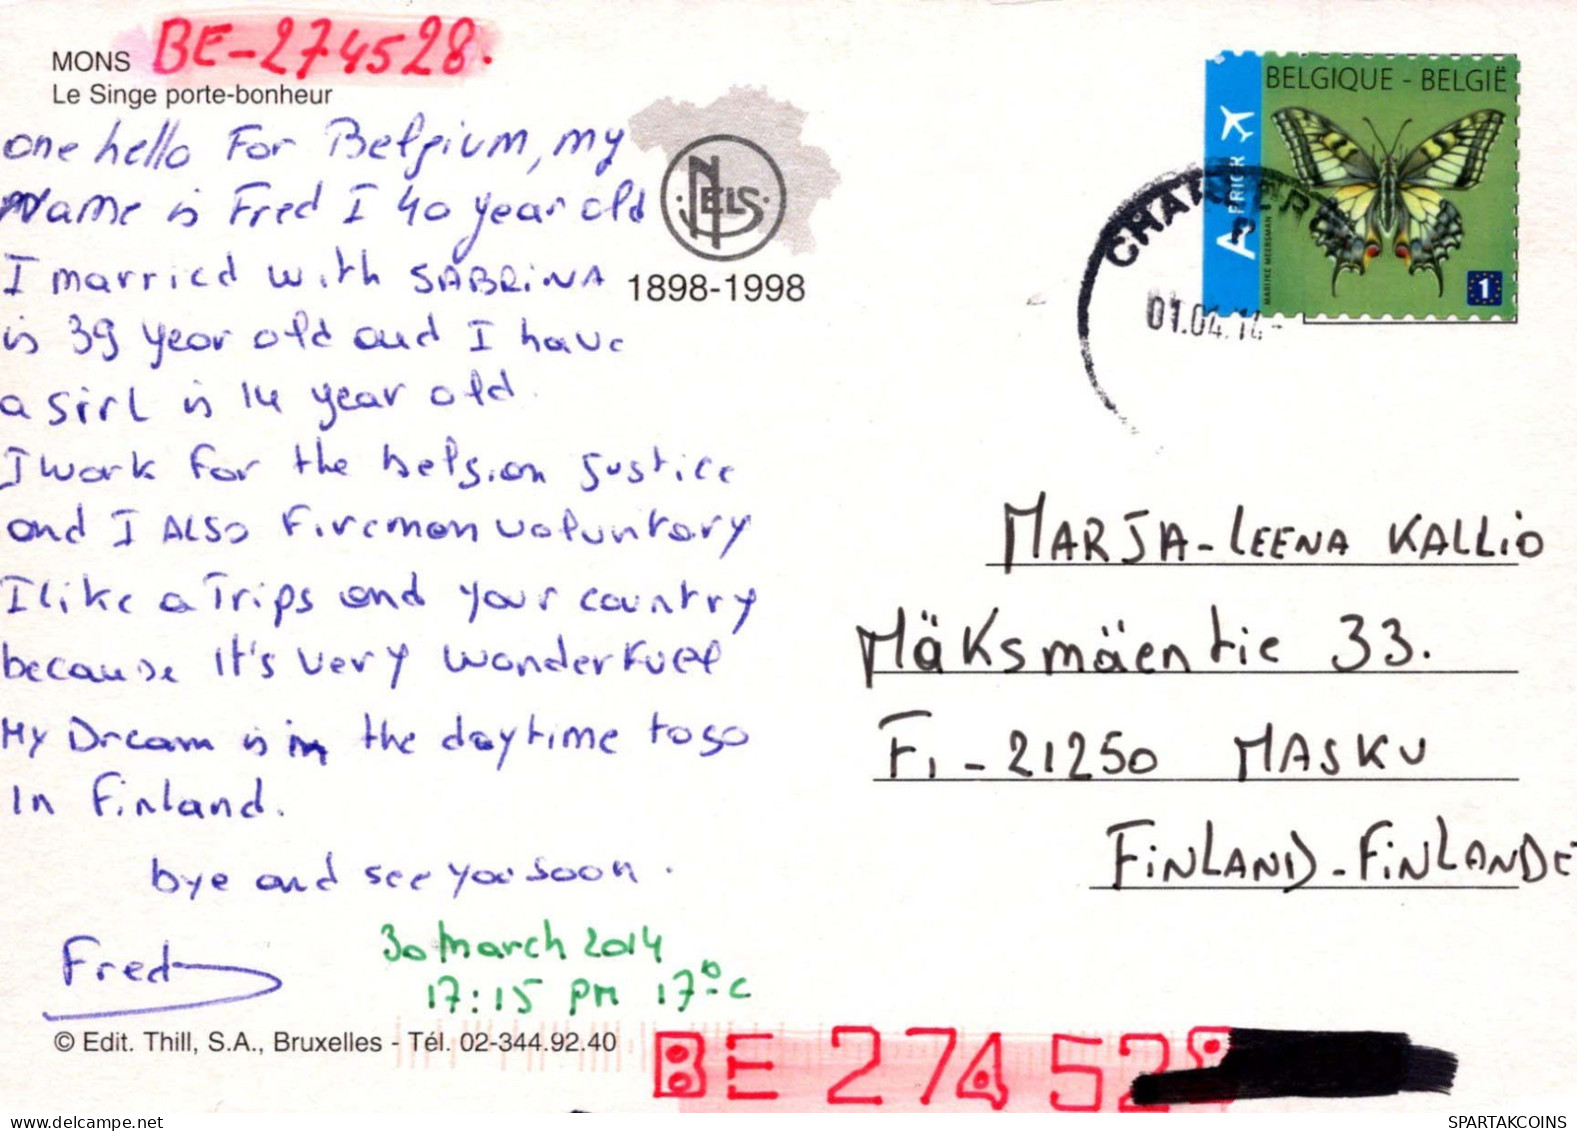 MONS BE-274528.
Le Singe porte-bonheur
one hello For Belgium, my
Name is Fred I 40 year old
I married with SABRiNA
is 39 year old and I have
a girl is 14 year old.
I work for the belgian justice
and I ALSO Fireman voluntary
I like a Trips and your country
because it's very wonderfuel
My Dream is in the daytime to go
in Finland.
bye and see you soon.
Fred
30 March 2014
17:15 pm 17°C
© Edit. Thill, S.A., Bruxelles - Tél. 02-344.92.40
BE 274528
NELS
1898-1998
BELGIQUE - BELGIË
A PRIOR
MARIJKE MEERSMAN
1
01.04.14-
MARJA-LEENA KALLiO
Mäksmäentie 33.
Fi-21250 MASKU
FiNLAND-FiNLANDE
SPARTAKCOINS